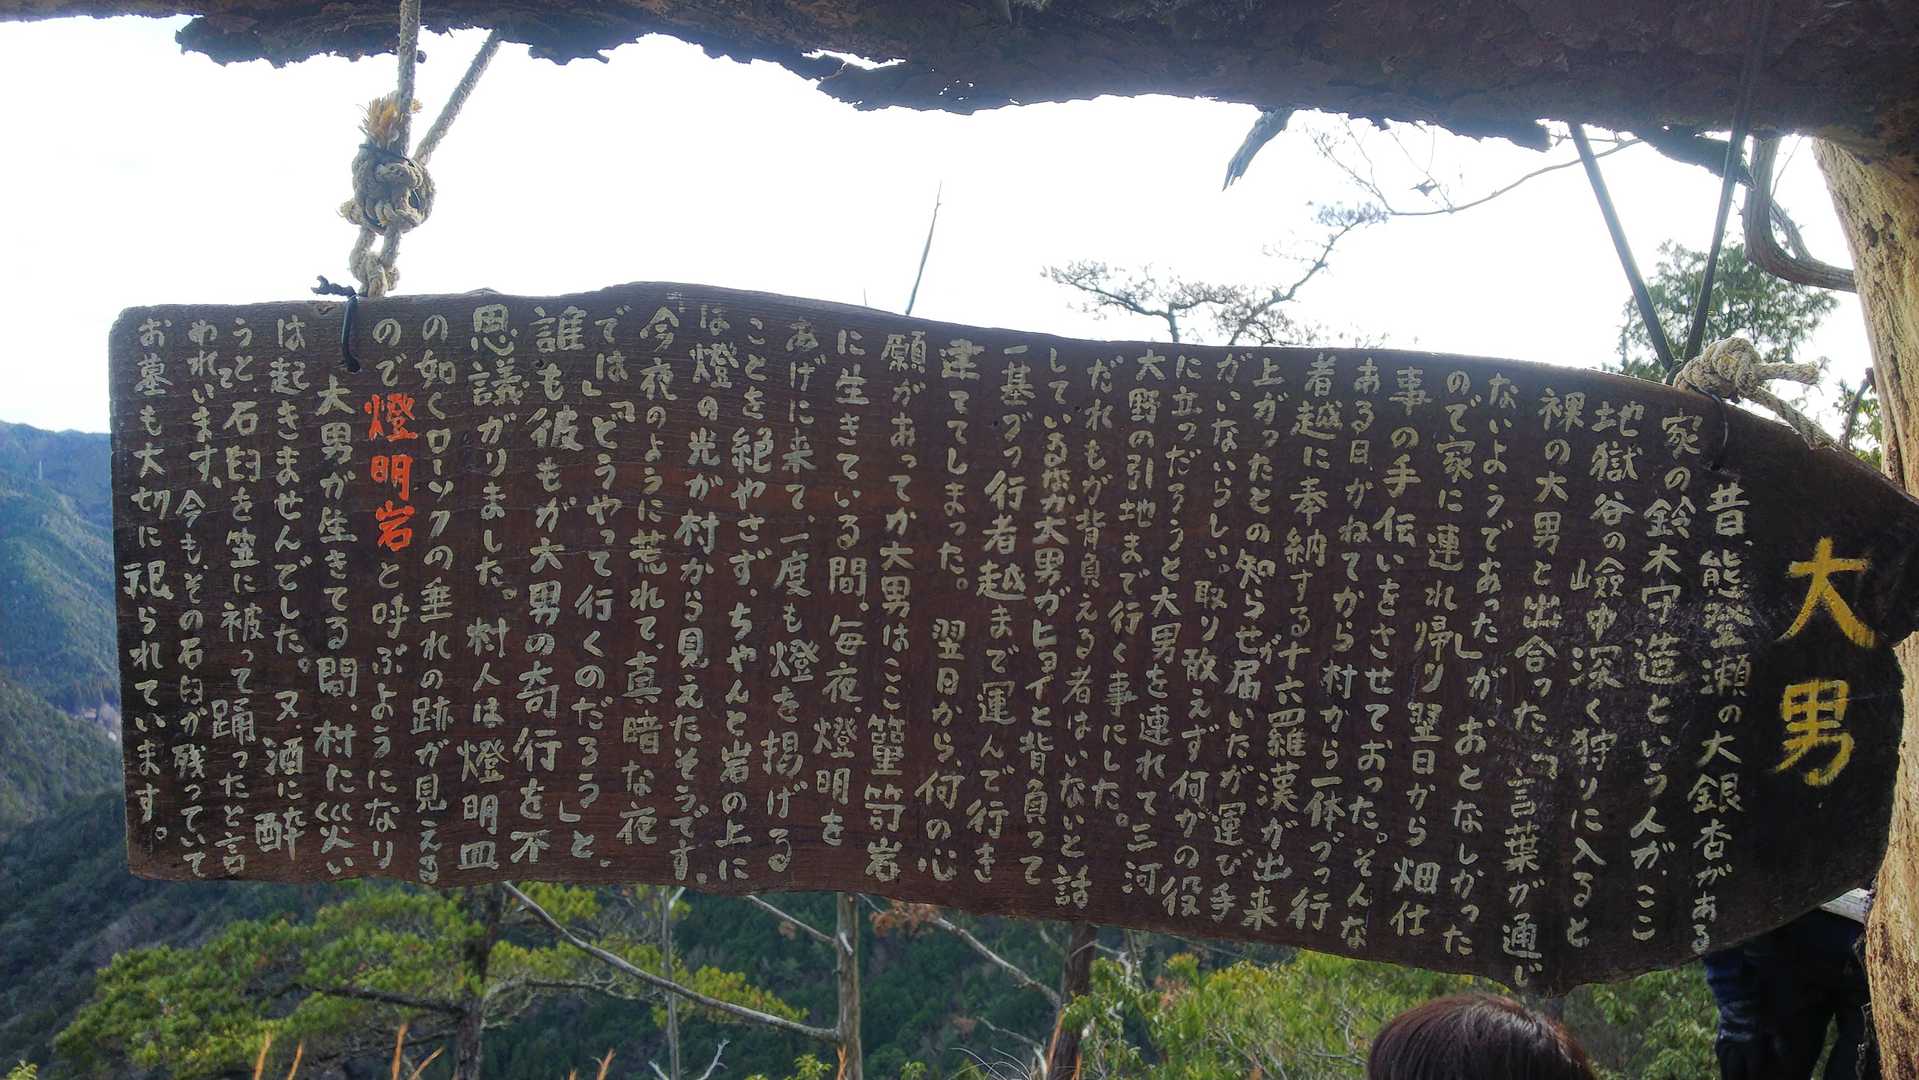 大男
昔、熊登瀬の大銀杏がある
家の鈴木守造という人が、ここ
地獄谷の山奥深く狩りに入ると
裸の大男と出合った。「言葉が通じ
ないようであった」が、おとなしかった
ので家に連れ帰り翌日から畑仕
事の手伝いをさせておった。そんな
ある日、かねてから村から一体づつ行
者越に奉納する十六羅漢が出来
上がったとの知らせが届いたが運び手
がいないらしい、取り敢えず何かの役
に立つだろうと大男を連れて三河
大野の引地まで行く事にした。
だれもが背負える者はいないと話
しているなか大男がヒョイと背負って
一基づつ行者越まで運んで行き
建ててしまった。翌日から、何の心
願があってか大男はここ篁笴岩
に生きている間、毎夜、燈明を
あげに来て、一度も燈を掲げる
ことを、絶やさず、ちゃんと岩の上に
ほ燈の光が村から見えたそうです。
今夜のように荒れて、真暗な夜
では」「どうやって行くのだろう」と、
誰も彼もが大男の奇行を不
思議がりました。村人は燈明皿
の如くローソクの垂れの跡が見える
ので燈明岩と呼ぶようになり
大男が生きてる間、村に災い
は起きませんでした。又酒に酔
うと、石臼を笠に被って踊ったと言
われています、今も、その石臼が残っていて
お墓も大切に祀られています。